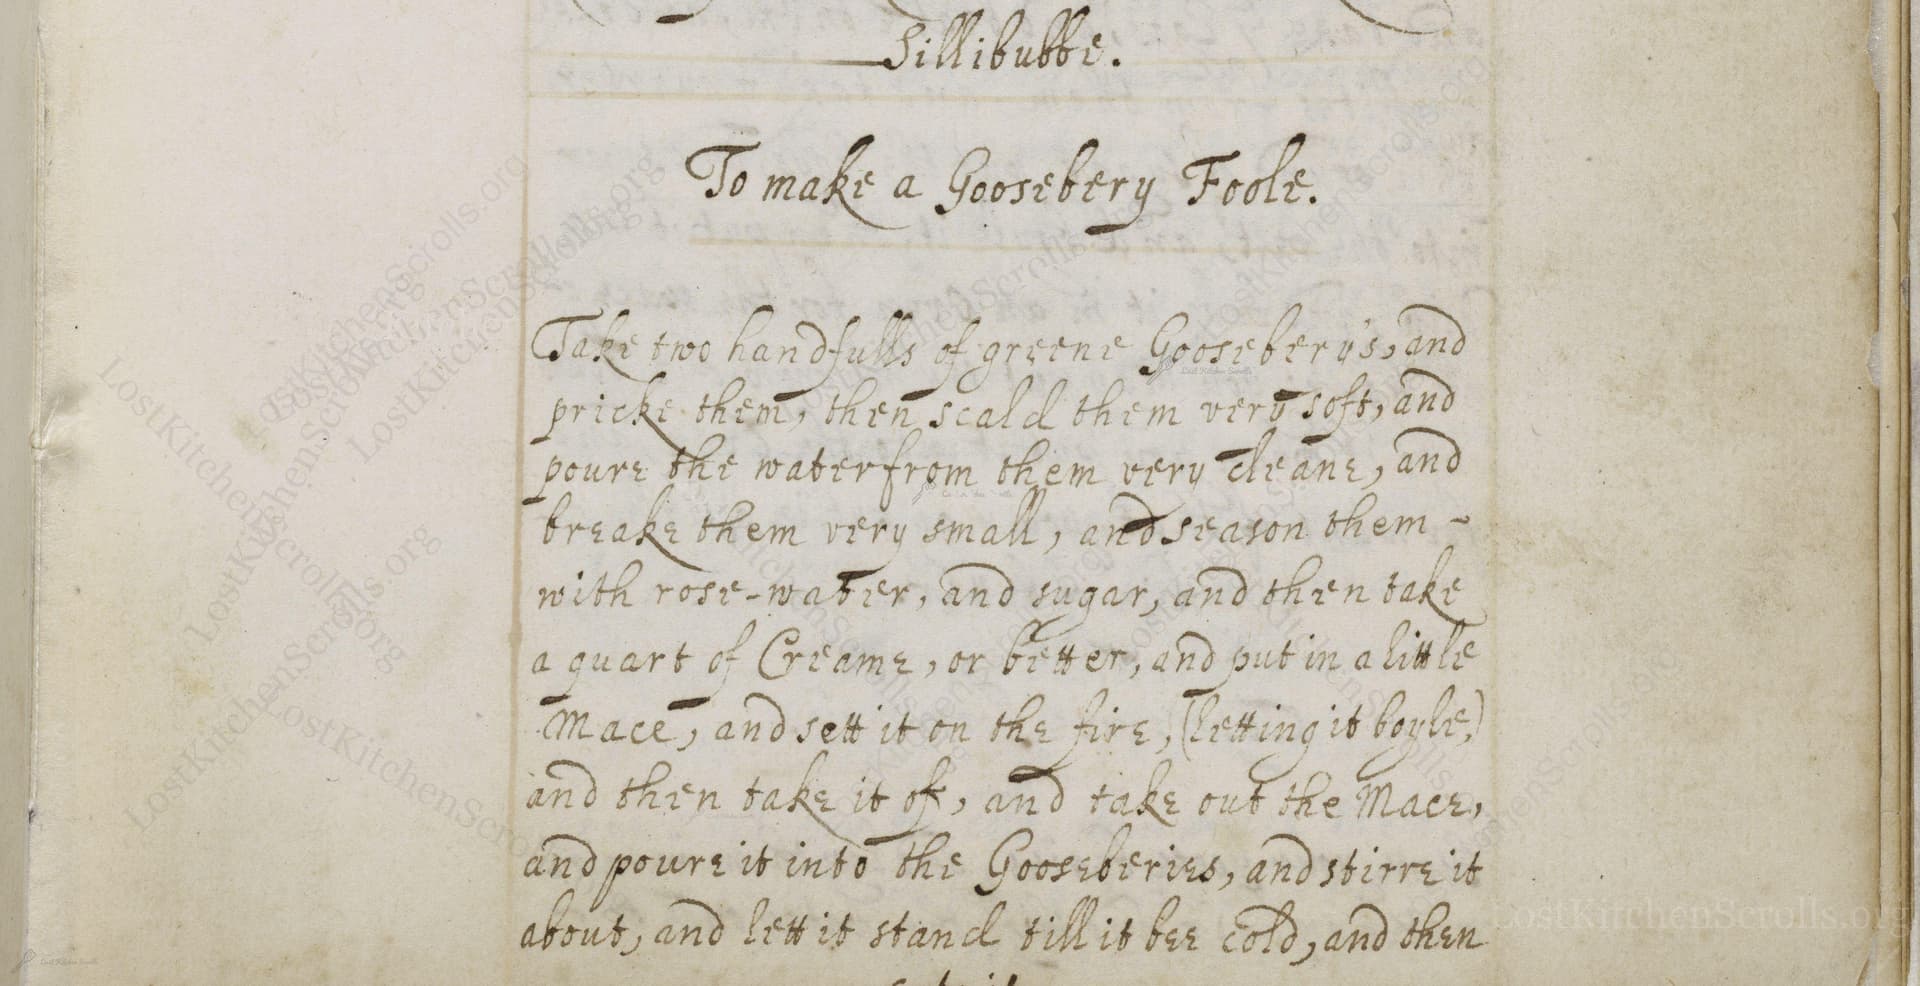 Sillibubbe.
To make a Goosebery Foole.
Take two handfulls of greene Goosebery's, and
pricke them, then scald them very soft, and
poure the water from them very cleane, and
breake them very small, and season them -
with rose-water, and sugar, and then take
a quart of Creame, or better, and put in a little
Mace, and sett it on the fire, (letting it boyle,)
and then take it of, and take out the Mace,
and poure it into the Gooseberies, and stirre it
about, and lett it stand till it bee cold, and then